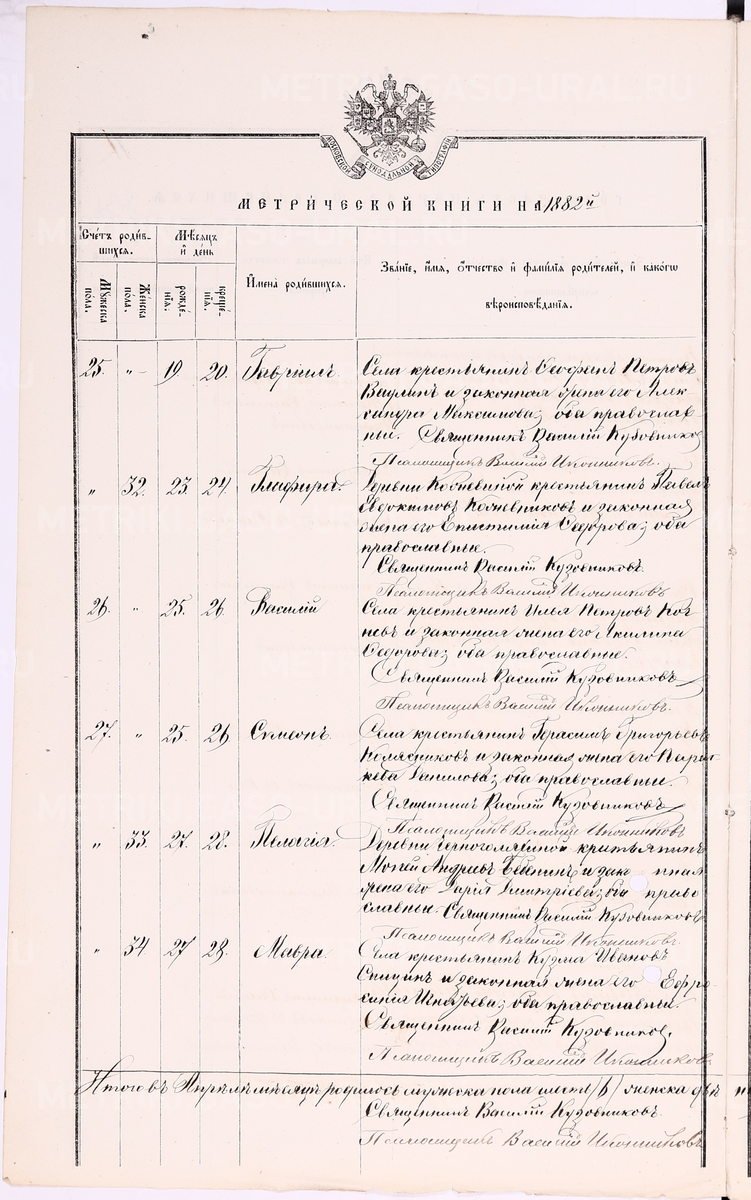 METRICS.GASO-URAL.RU
МОСКОВСКОЙ СУНОДАЛЬНОЙ ТИПОГРАФІИ
МЕТРИ́ЧЕСКОЙ КНИГИ НА 1882й
Сче́тъ роди́в-
шихся.
Мѣсяцъ
и҆ де́нь
Мꙋжеска
по́ла.
Же́нска
по́ла.
рожде́-
нїѧ.
креще́-
нїѧ.
И҆мена̀ роди́вшихся.
Зва́нїе, и҆́мѧ, ѻ҆́тчество и҆ фами́лїѧ роди́телей, и҆ како́гѡ
вѣроисповѣ́данїѧ.
25. „ 19. 20. Гавріилъ. Села крестьянинъ Ѳеофилъ Петровъ
и законная жена его Алек-
сандра Максимова; оба православ-
ные. Священникъ Василій Кузовников
Псаломщикъ Василій Иконниковъ.
„ 32. 23. 24. Глафира. Деревни Кожевиной крестьянинъ Павелъ
Евдокимовъ Кожевниковъ и законная
жена его Епистимія Ѳедорова; оба
православные.
Священникъ Василій Кузовниковъ.
Псаломщикъ Василій Иконниковъ
26. „ 25. 26 Василій Села крестьянинъ Илья Петровъ Коч-
невъ и законная жена его Акилина
Ѳедорова; оба православные.
Священникъ Василій Кузовниковъ
Псаломщикъ Василій Иконниковъ.
27. „ 25. 26 Сумеонъ. Села крестьянинъ Герасимъ Григорьевъ
Колясниковъ и законная жена его
Данилова; оба православные.
Священникъ Василій Кузовниковъ
Псаломщикъ Василій Иконниковъ
„ 33. 27. 28. Пелагія. Деревни Черноголяниной крестьянинъ
Мокей Андріевъ и зак нная
жена его Дарія Димитріева; оба право-
славные. Священникъ Василій Кузовниковъ
Псаломщикъ Василій Иконниковъ.
„ 34 27 28. Мавра. Села крестьянинъ Кузма Ивановъ
Спицинъ и законная жена его Евфро-
синія Игнатьева; оба православные.
Священникъ Василій Кузовников.
Псаломщикъ Василій Иконниковъ
Итого въ Апрѣлѣ мѣсяцѣ родилось мужеска пола шесть /6/ женска двѣ
Священникъ Василій Кузовниковъ.
Псаломщикъ Василій Иконниковъ